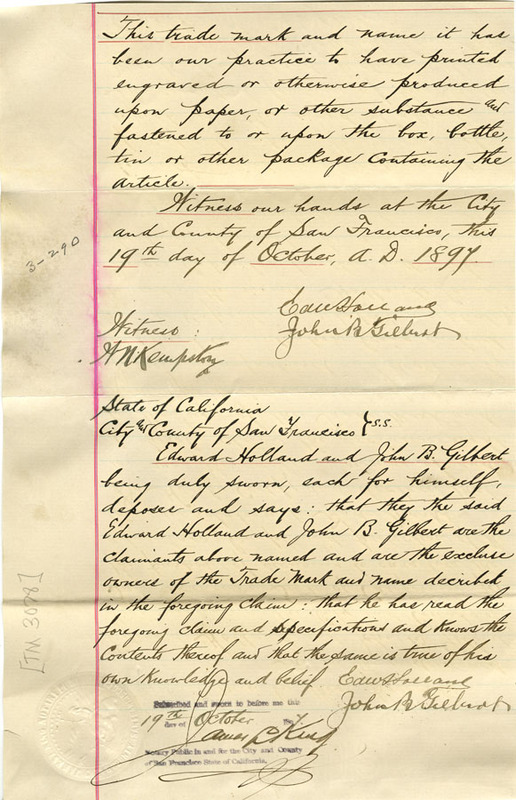 This trade mark and name it has
been our practice to have printed
engraved or otherwise produced
upon paper, or other substance and
fastened to or upon the box, bottle,
tin or other package containing the
article.
Witness our hands at the City
and County of San Francisco, this
19th day of October, A.D. 1897.
3-290
Edw Holland
John B Gilbert
Witness:
H N Kempston
State of California
City and County of San Francisco } S.S.
Edward Holland and John B. Gilbert
being duly sworn, each for himself,
deposes and says: that they the said
Edward Holland and John B. Gilbert are the
claimants above named and are the excluse
owners of the Trade Mark and name decribed
in the foregoing claim: that he has read the
foregoing claim and specifications and knows the
contents thereof and that the same is true of his
own knowledge and belief
Edw Holland
John B Gilbert
[TM 3078]
Subscribed and sworn to before me this
19th day of October 97
James L King
Notary Public in and for the City and County
of San Francisco State of California.